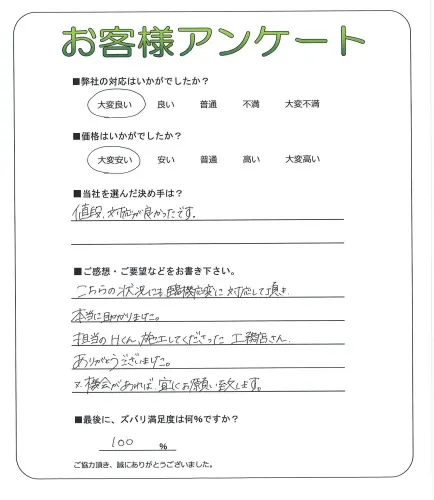 お客様アンケート
■弊社の対応はいかがでしたか?
大変良い 良い 普通 不満 大変不満
■価格はいかがでしたか?
大変安い 安い 普通 高い 大変高い
■当社を選んだ決め手は?
値段、対応が良かったです。
■ご感想・ご要望などをお書き下さい。
こちらの状況にも臨機応変に対応して頂き、
本当に助かりました。
担当のHくん、施工してくださった工務店さん、
ありがとうございました。
又、機会があれば、宜しくお願い致します。
■最後に、ズバリ満足度は何%ですか?
100 %
ご協力頂き、誠にありがとうございました。